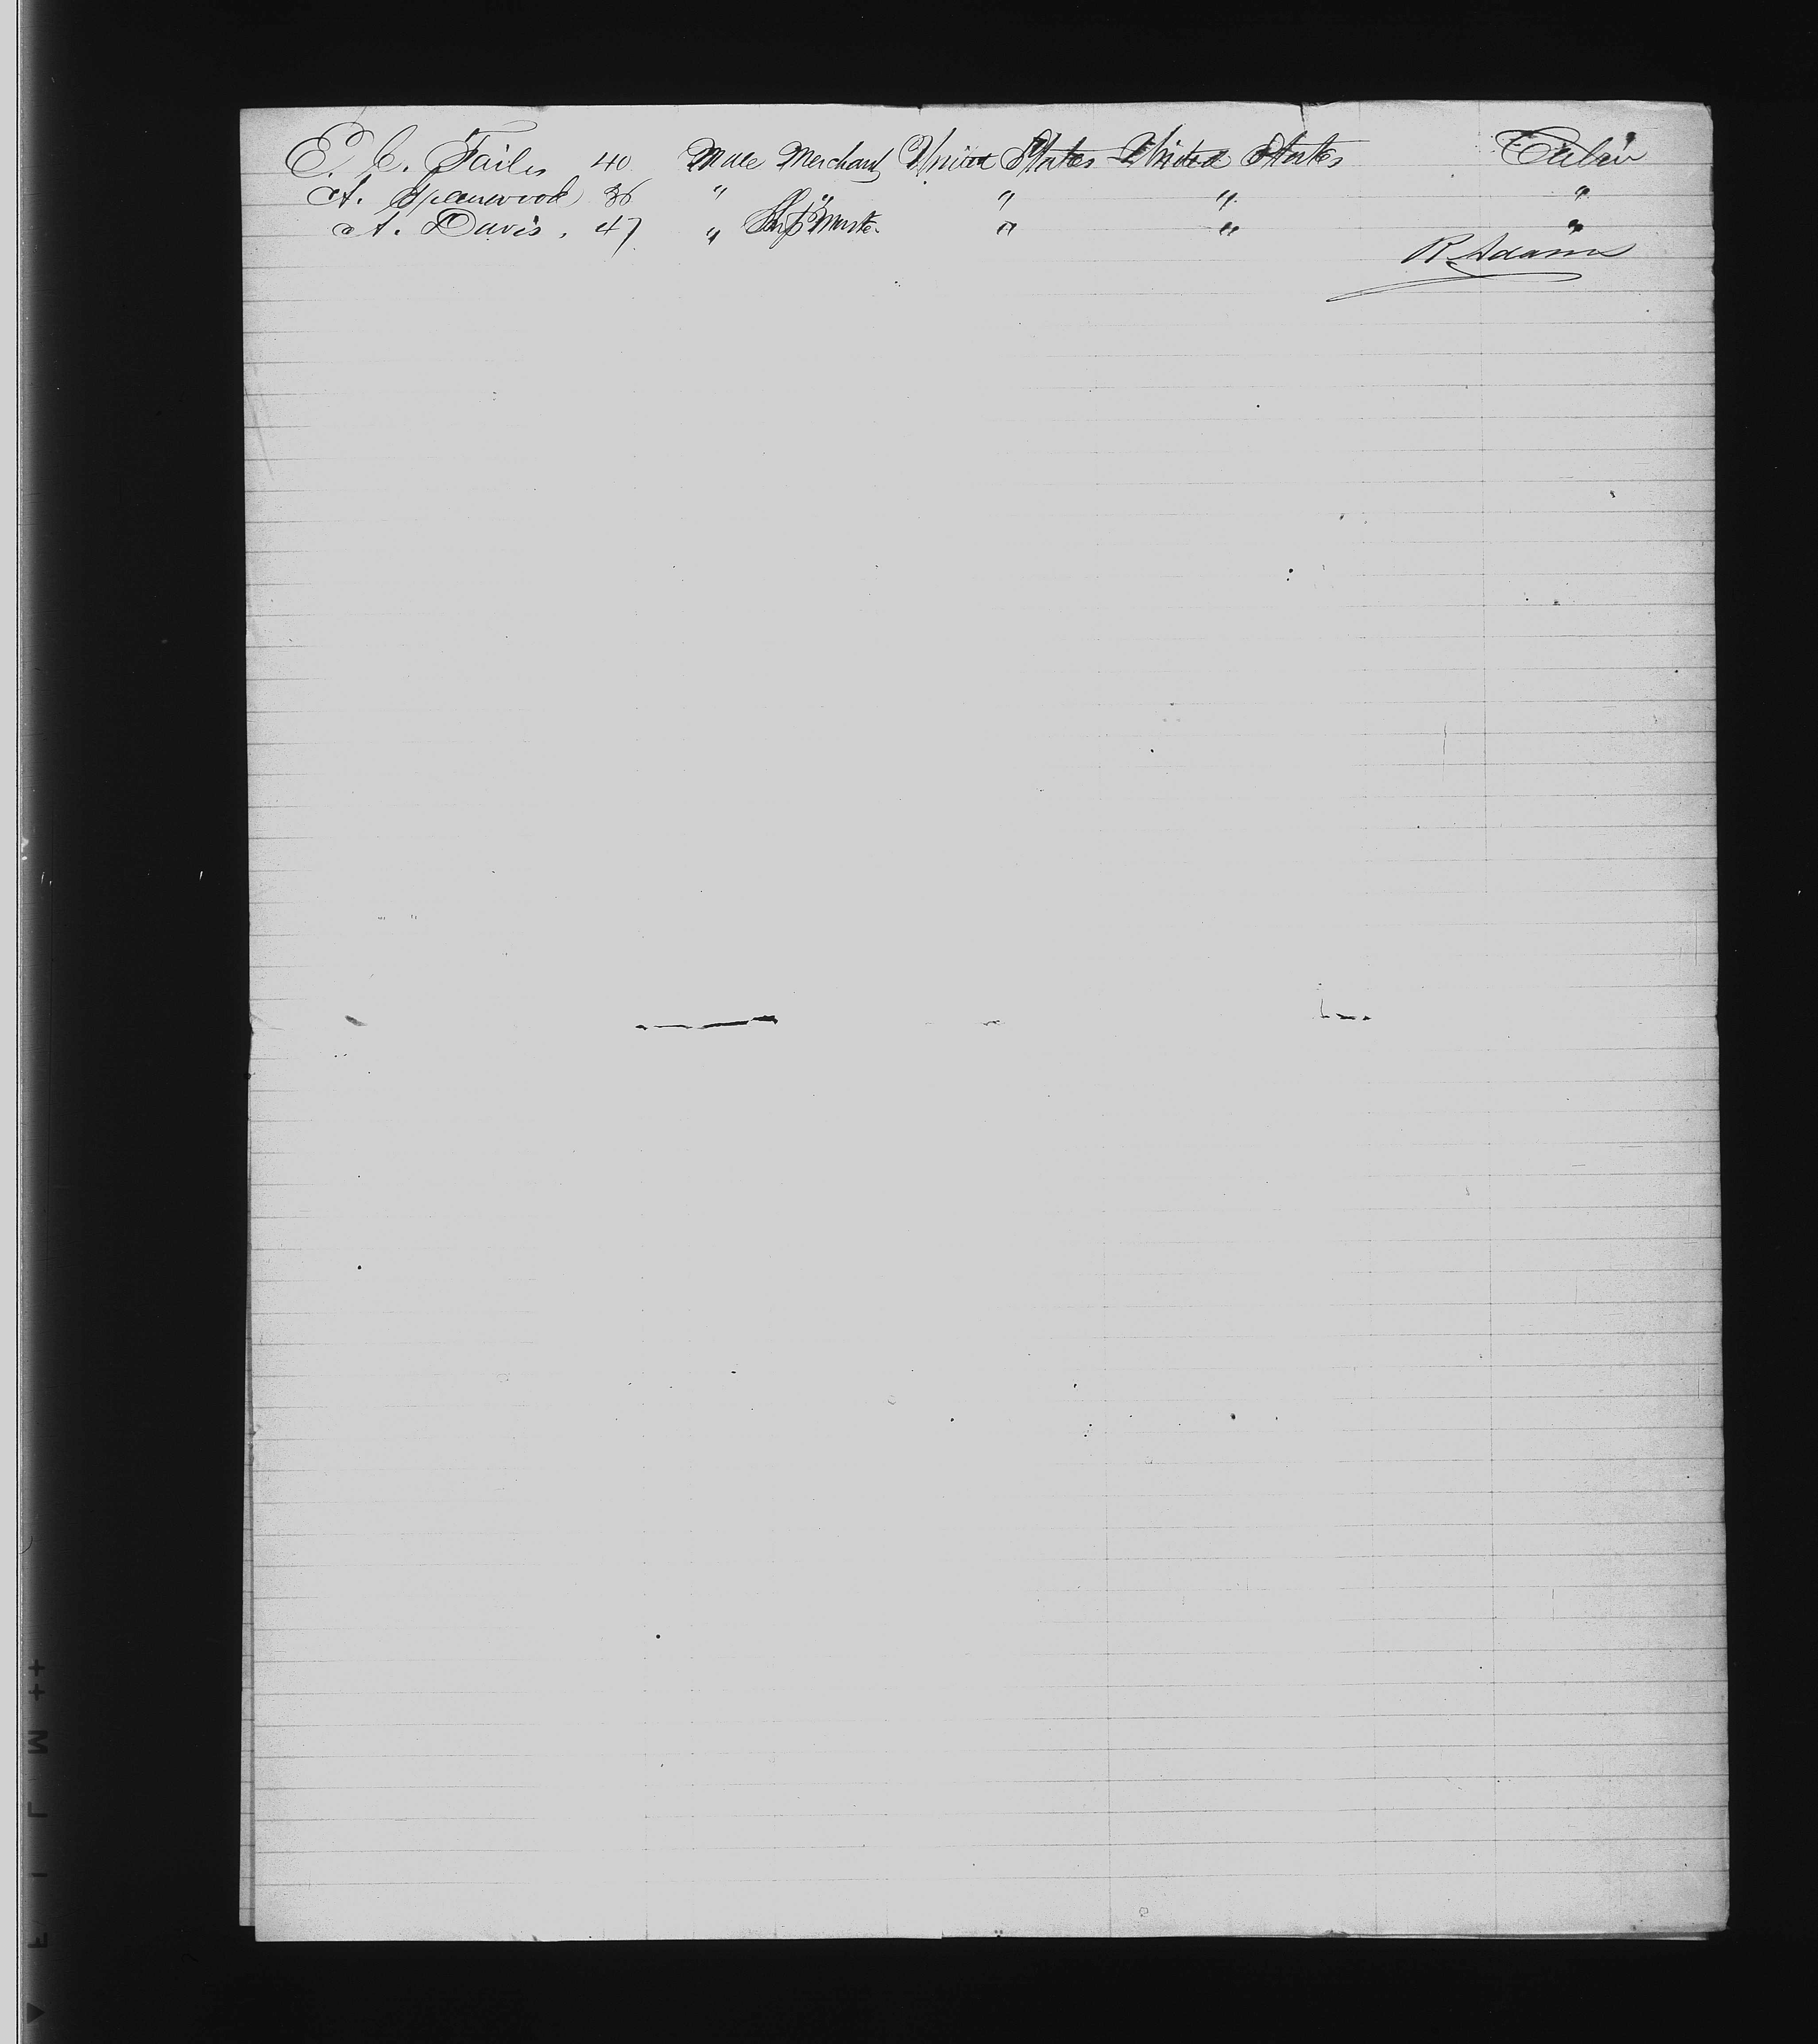 E. C. Failes 40 Male Merchant United States United States Cabin
A. Spearwood 36 " " " " "
A. Davis. 47 " Ship Master " " "
R Adams
FILM++